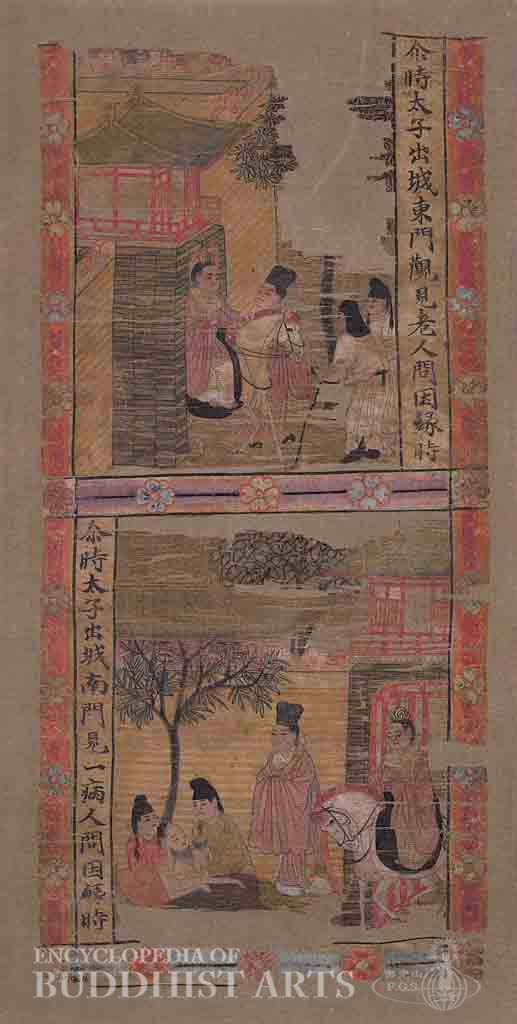 尒時太子出城東門觀見老人問因緣時
尒時太子出城南門見一病人問因緣時
ENCYCLOPEDIA OF
BUDDHIST ARTS
佛光山
F.G.S.